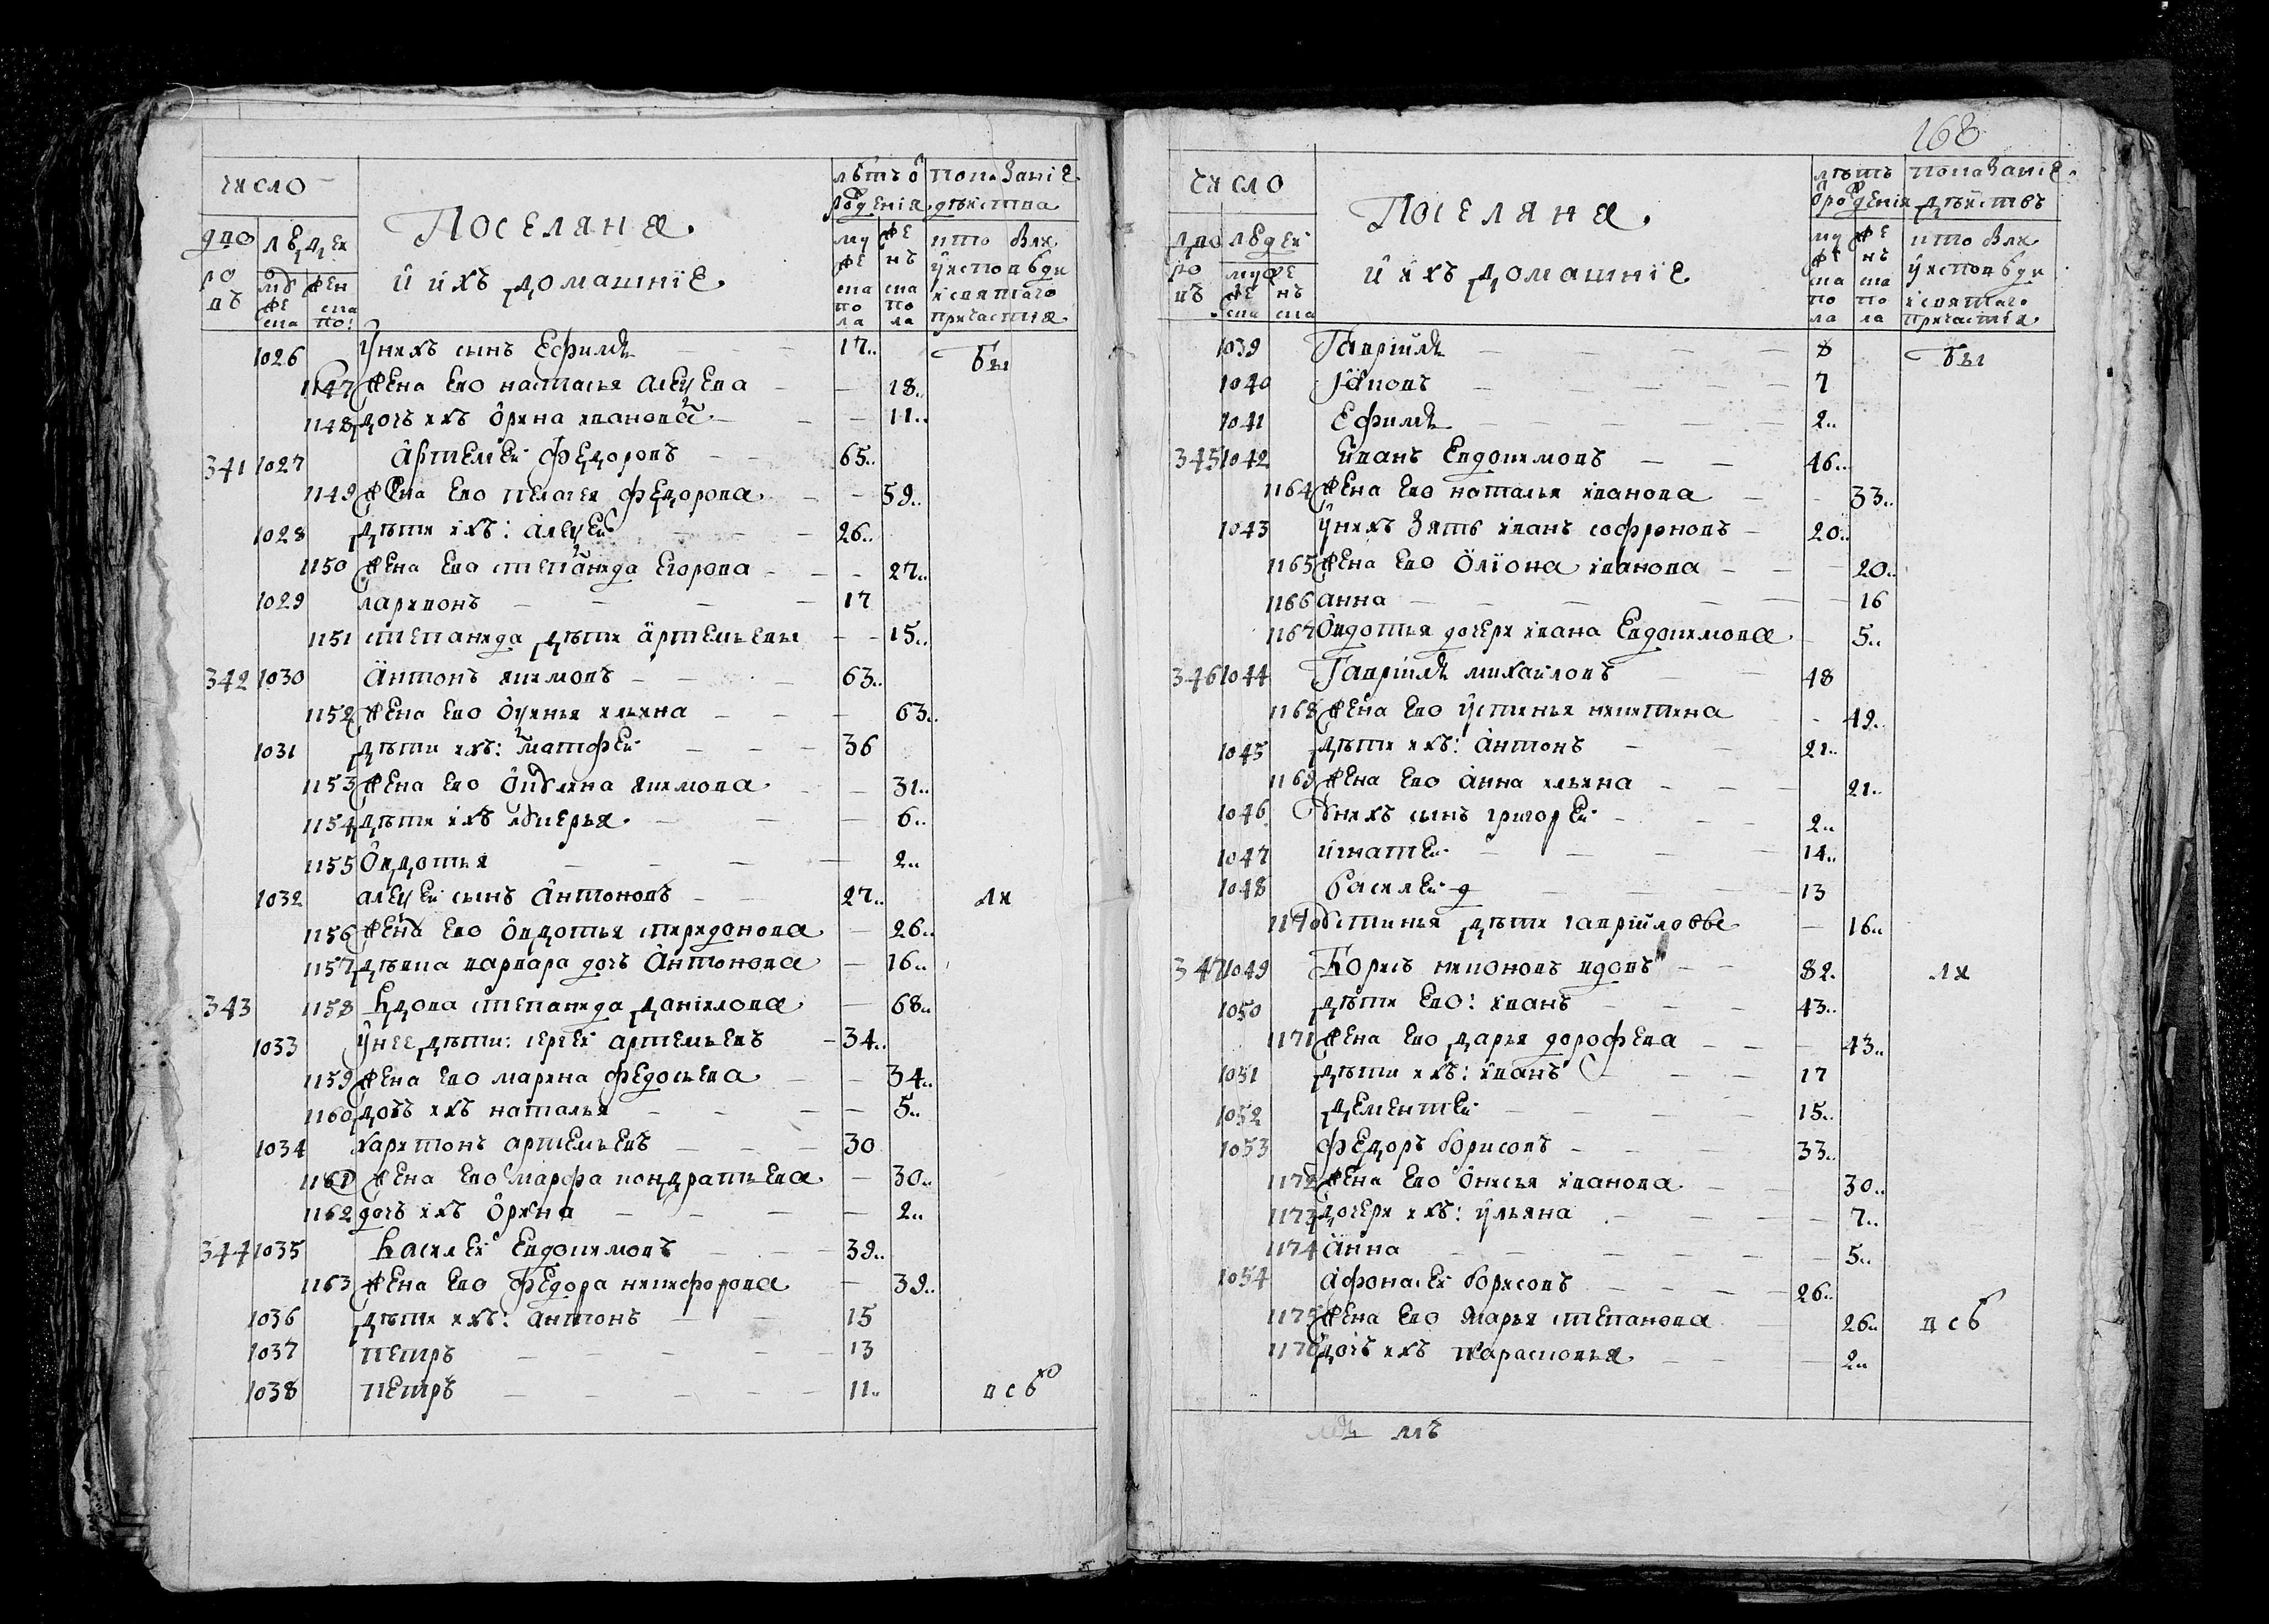 число
дворовъ
людей
мужеска
женска по:
Поселяня
и ихъ домашніе
лѣтъ о рожденія
мужеска пола
женъска пола
показаніе дѣйства
кто былъ у исповѣди и святаго причастія
1026 у нихъ сынъ Ефимъ 17.. бы
1147 жена ево настасья алеѯева 18..
1148 дочь ихъ орина иванова 11..
341 1027 артемей федоровъ 65..
1149 жена ево пелагея федорова 59..
1028 дѣти ихъ: алеѯей 26..
1150 жена ево степанида егорова 27..
1029 ларивонъ 17
1151 степанида дѣти артемьевы 15..
342 1030 антонъ якимовъ 63..
1152 жена ево оѯинья ильина 63..
1031 дѣти ихъ: матфей 36
1153 жена ево якимова 31..
1154 дѣти ихъ лукерья 6..
1155 овдотья 2..
1032 алеѯей сынъ антоновъ 27.. ли
1156 жена ево овдотья спиридонова 26..
1157 дѣвка варвара дочь антонова 16..
343 1158 вдова степанида данилова 68..
1033 у нее дѣти: сергей артемьевъ 34..
1159 жена ево марина федосьева 34..
1160 дочь ихъ наталья 5..
1034 харитонъ артемьевъ 30
1161 жена ево марфа кондратьева 30..
1162 дочь ихъ орина 2..
344 1035 василей евдокимовъ 39..
1163 жена ево федора никифорова 39..
1036 дѣти ихъ: антонъ 15
1037 петръ 13
1038 петръ 11.. всѣ
168
число
дворовъ
людей
мужеска
женъска
Поселяня
и ихъ домашніе
лѣтъ о рожденія
мужеска пола
женъска пола
показаніе дѣйствъ
кто былъ у исповѣди и святаго причастія
1039 Гавріилъ 8 бы
1040 іаковъ 7
1041 Ефимъ 2..
345 1042 иванъ евдокимовъ 46..
1164 жена ево наталья иванова 33..
1043 у нихъ зять иванъ софроновъ 20..
1165 жена ево олiона иванова 20..
1166 анна 16
1167 овдотья дочери ивана евдокимова 5..
346 1044 Гавріилъ михайловъ 48
1168 жена ево устинья никитина 49..
1045 дѣти ихъ: антонъ 21..
1169 жена ево анна ильина 21..
1046 у нихъ сынъ григорей 2..
1047 игнатей 14..
1048 василей 13
1170 устинья дѣти гавріиловы 16..
347 1049 Борисъ никоновъ вдовъ 82. ли
1050 дѣти ево: иванъ 43..
1171 жена ево дарья дорофева 43..
1051 дѣти ихъ: иванъ 17
1052 дементей 15..
1053 федоръ борисовъ 33..
1172 жена ево онисья иванова 30..
1173 дочери ихъ: ульяна 7..
1174 анна 5..
1054 афонасей борисовъ 26..
1175 жена ево марья степанова 26.. всѣ
1176 дочь ихъ парасковья 2..
мъ